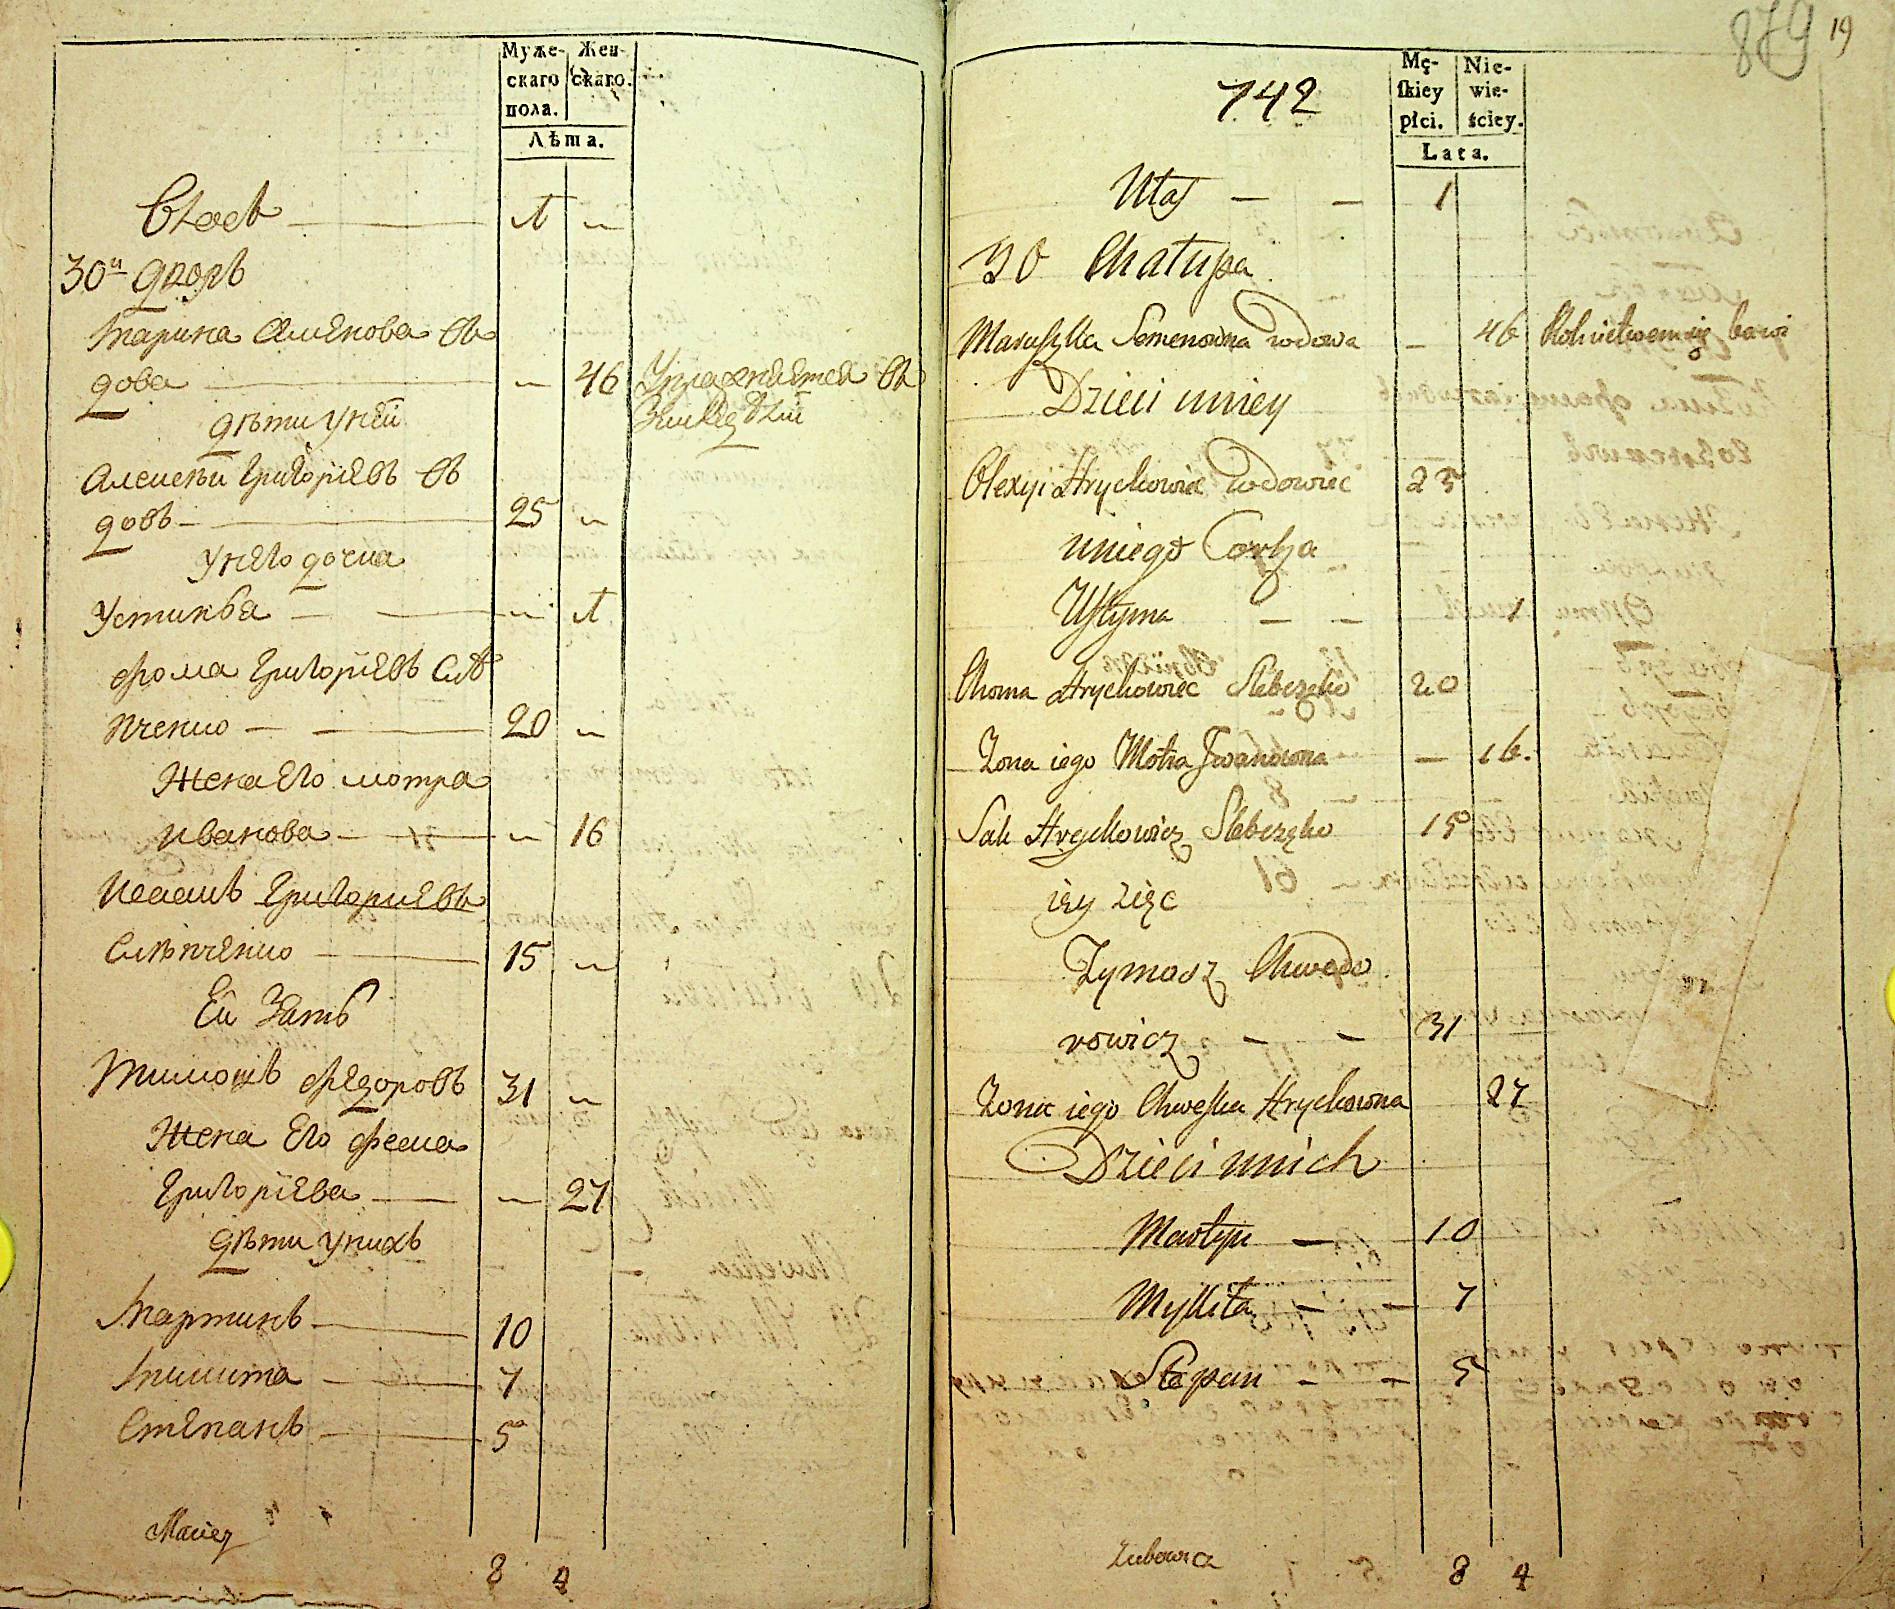 Муже-
скаго
пола.
Жен-
скаго.
Лѣта.
1 „
30й дворъ
Марина Семенова въ
дова — „ 46 Упражняется въ
дѣти у ней
Алексѣй Григоріевъ въ
довъ — 25 „
у него дочка
Устинья — „ 1
Фома Григоріевъ Слѣ
пченко — 20 „
Жена Его мотра
иванова — „ 16
Исакъ Григориевъ
Слѣпченко — 15 „
Ей Зять
Тимошъ Федоровъ 31 „
Жена Его феска
Григоріева — „ 27
дѣти у нихъ
Мартинъ — 10
Микита — 7
Степанъ — 5
Maciey
8 4
879 19
742
Mę-
ſkiey
płci.
Nie-
wie-
ściey.
Lata.
Utaſ — — 1
30 Chatupa
Maruſzka Semenowna wdowa — 46 bawi
Dzieci uniey
Olexyi Hryckowicz Wdowiec 25
uniego Corka
Uſtyma — — 1
Choma Hryckowicz Slebczęko 20
Zona iego Motra Jwanowna — 16.
Sak Hryckowicz Slebczęko 15
iey zięc
Tymosz Chwedo
rowicz — — 31
Zona iego Chweſka Hryckowna 27
Dzieci unich
Martyn — 10
Mykita — — 7
Stepan — — 5
8 4